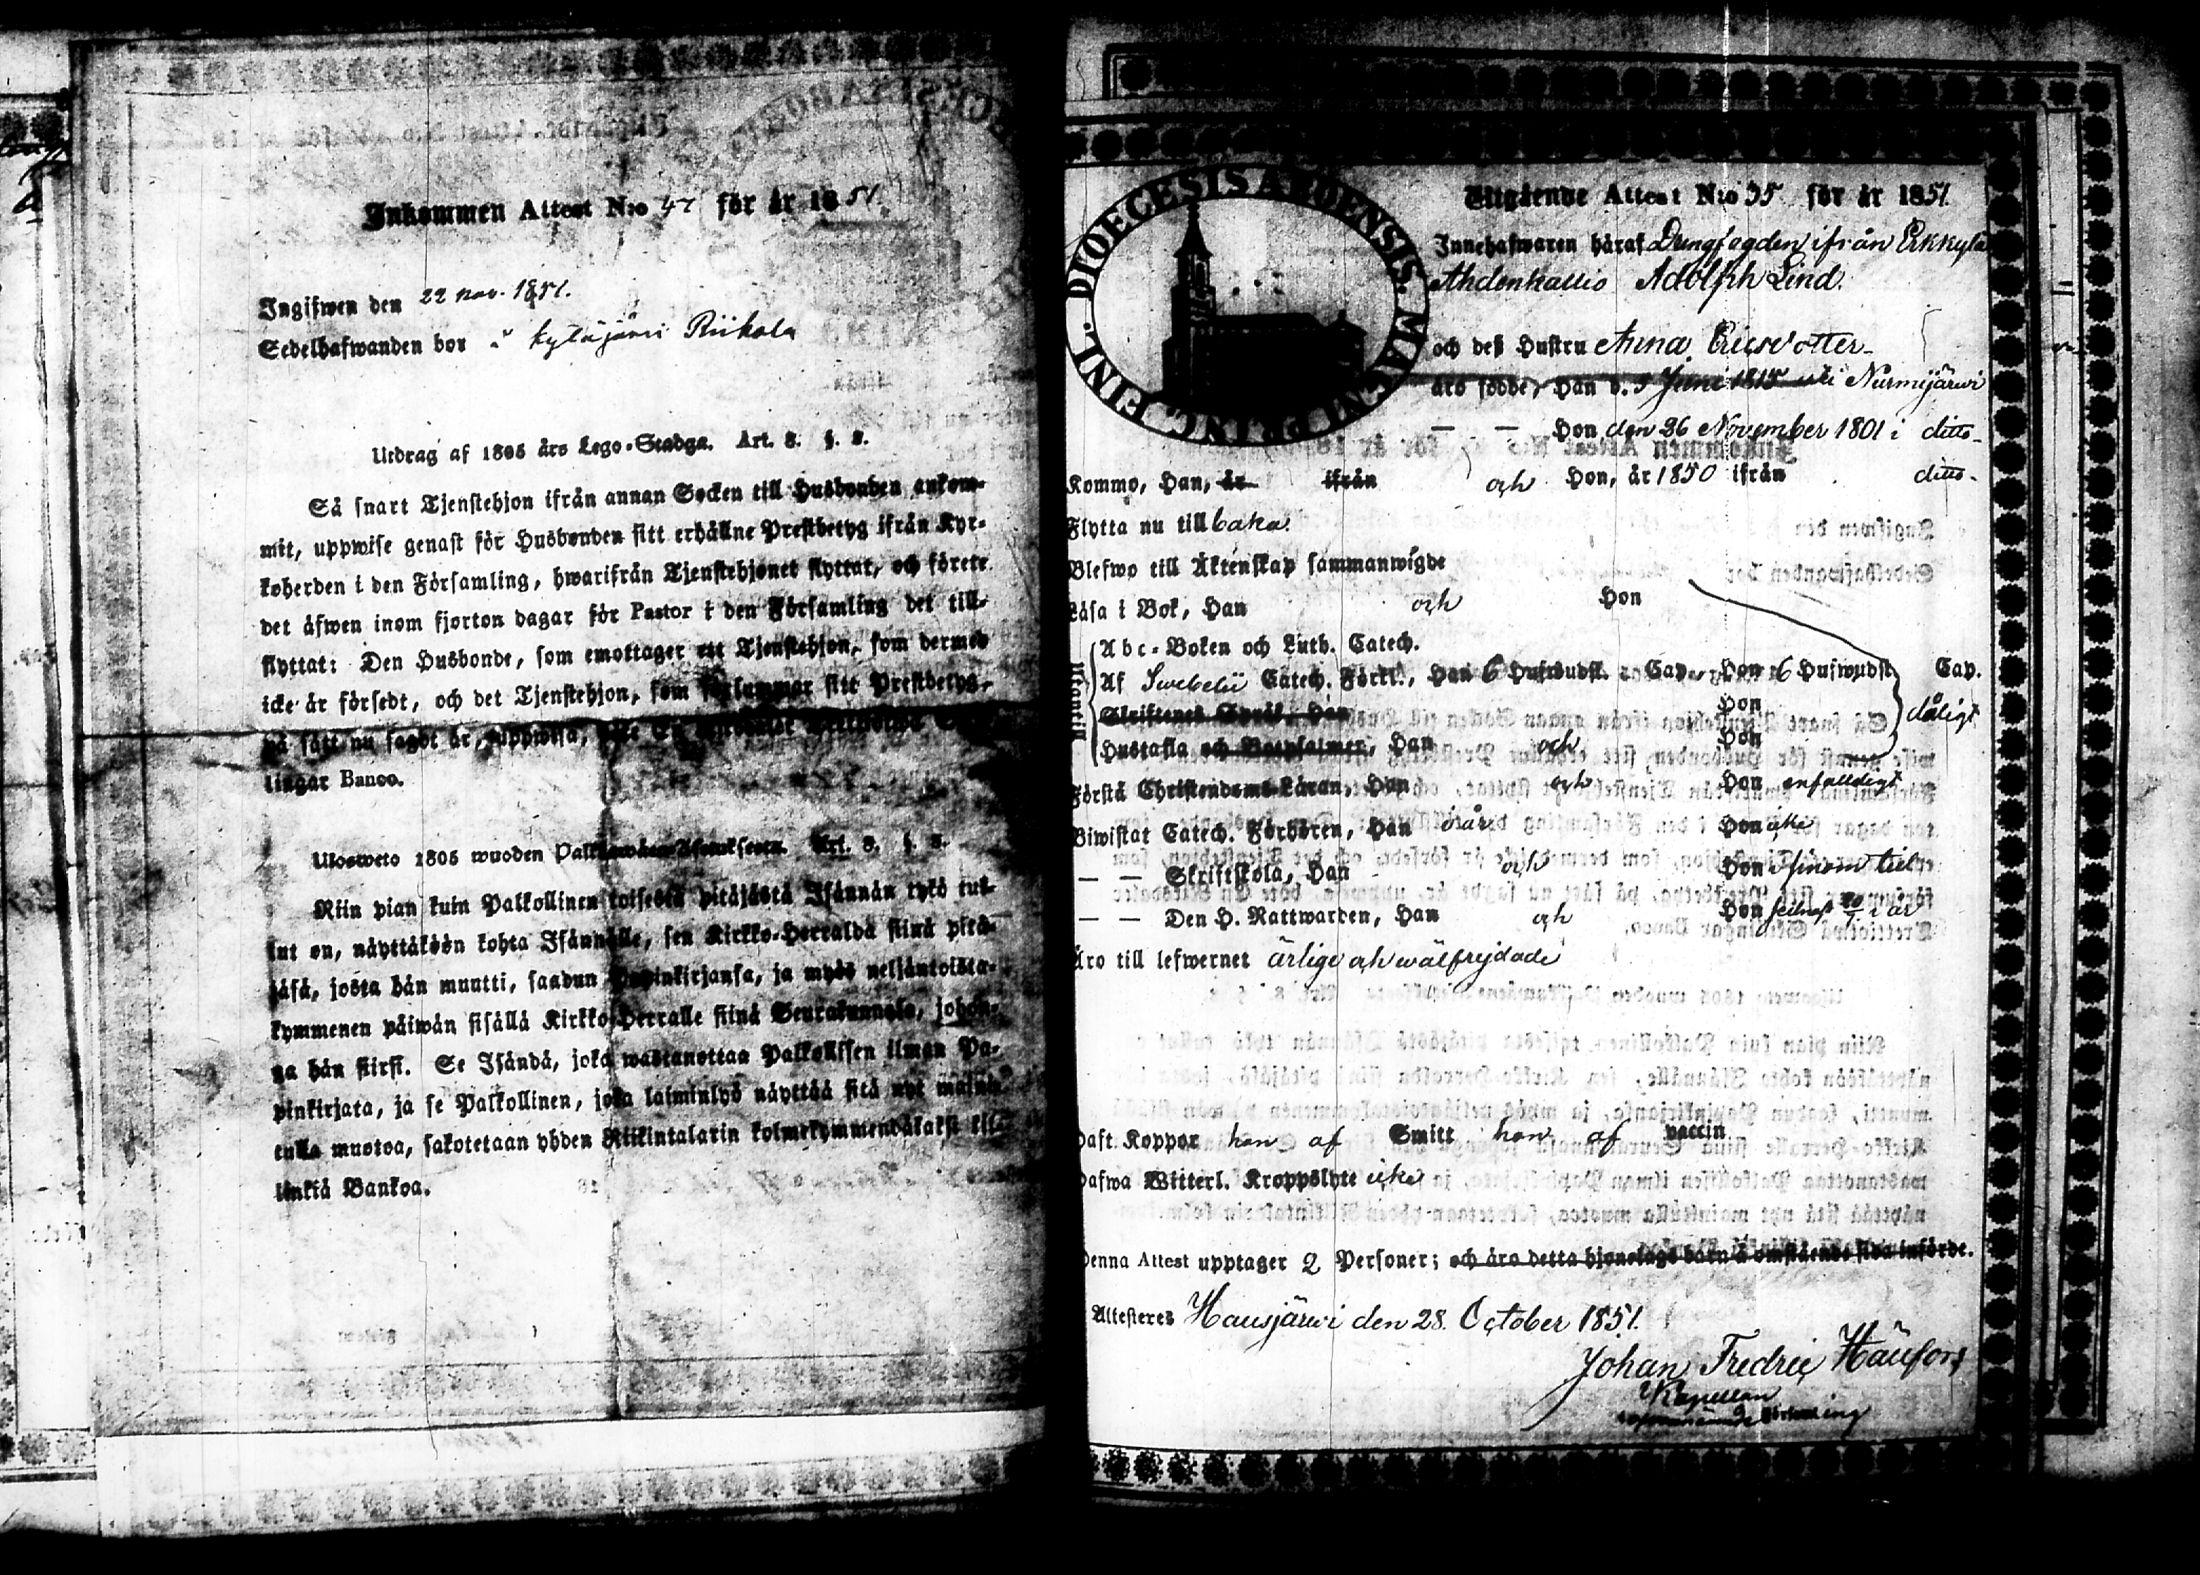 Inkommen Attest N:o 47 för år 1851.
Ingifwen den 22 nov. 1851.
Sedelhafwanden bor i Kytäjärvi Riikola
Utdrag af 1805 års Lego-Stadga. Art. 8. §. 8.
Så snart Tjenstehjon ifrån annan Socken till Husbonden ankom-
mit, uppwise genast för Husbonden sitt erhållne Prestbetyg ifrån Kyr-
koherden i den Församling, hwarifrån Tjenstehjonet flyttat, och förete
det äfwen inom fjorton dagar för Pastor i den Församling det till-
flyttat: Den Husbonde, som emottager ett Tjenstehjon, som dermed
icke är försedt, och det Tjenstehjon, som försummar sitt Prestbetyg,
på sätt nu sagdt är, uppwisa,
lingar Banco.
Ulosweto 1805 wuoden Art. 8. §. 8.
Niin pian kuin Palkollinen toisesta pitäjästä Isännän tykö tul-
lut on, näyttäköön kohta Isännälle, sen Kirkko-Herralda siinä pitä-
jäsä, josta hän muutti, saadun Papinkirjansa, ja myös neljäntoista-
kymmenen päiwän sisällä Kirkko-Herralle siinä Seurakunnasa, johon-
ga hän siirsi. Se Isändä, joka wastanottaa Palkollisen ilman Pa-
pinkirjata, ja se Palkollinen, joka laiminlyö näyttää sitä nyt mainit-
tulla muotoa, sakotetaan yhden Riikintalarin kolmekymmendäkaksi kil-
linkiä Bankoa.
DIOECESIS ABOENSIS. MAGNI PRINC. FINL.
Utgående Attest N:o 35 för år 1851.
Innehafwaren häraf Drengfogden ifrån Erkkylä
Ahdenkallio Adolph Lind.
och deß Hustru Anna Ericsdotter
äro födde, Han d. 5 Juni 1815 uti Nurmijärwi
— — Hon den 26 November 1801 i ditto
Kommo, Han, år ifrån och Hon, år 1850 ifrån ditto
Flytta nu tillbaka
Blefwo till Äktenskap sammanwigde
Läsa i Bok, Han och Hon
Abc-Boken och Luth. Catech.
Af Swebelii Catech. Förkl., Han 6 Hufwudst. Cap. Hon 6 Hufwudst. Cap.
Utantill
Skriftenes Språk, Han Hon dåligt
Hustafla och Botpsalmer, Han och Hon
Förstå Christendoms-Läran, Han och Hon enfaldigt
Biwistat Catech. Förhören, Han i år Hon icke
— — Skriftskola, Han och Hon
— — Den H. Nattwarden, Han och Hon i år
Äro till lefwernet ärlige och wälfrejdade
Haft Koppor han af Smitt hon af vaccin
Hafwa Witterl. Kroppslyte icke
Denna Attest upptager 2 Personer; och äro detta hjonelags barn å omstående sida införde.
Attesteres Hausjärwi den 28. October 1851.
Johan Fredric
Kapellan